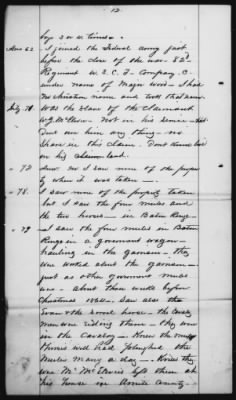 12.
boy 3 or 4 times.
Ans 62. I joined the Federal Army just
before the close of the war. 82d
Regiment U.S.C.I. Company C.
under name of Major Word - I had
no christian name and took that name.
Int'y 71 Was the slave of the Claimant
W.G. McElwee. Not in his service
Dont owe him any thing - no
share in this Claim. Dont live
on his land.
" 72 Ans. no I saw none of the property
when it was taken -
" 78. I saw none of the property taken
but I saw the four mules and
the two horses - in Baton Rouge -
" 79 I saw the four mules in Baton
Rouge in a government wagon -
hauling in the garrison - they
were worked about the garrison
just as other government mules
was - about three weeks before
Christmas 1864. Saw also the
&amp; the sorrel horse - the Cavalry
men were riding them - they were
in the Cavalry - Knew the mules
them well had ploughed the
mules many a day - Knew they
was Mr. left them at
his house in Amite County -